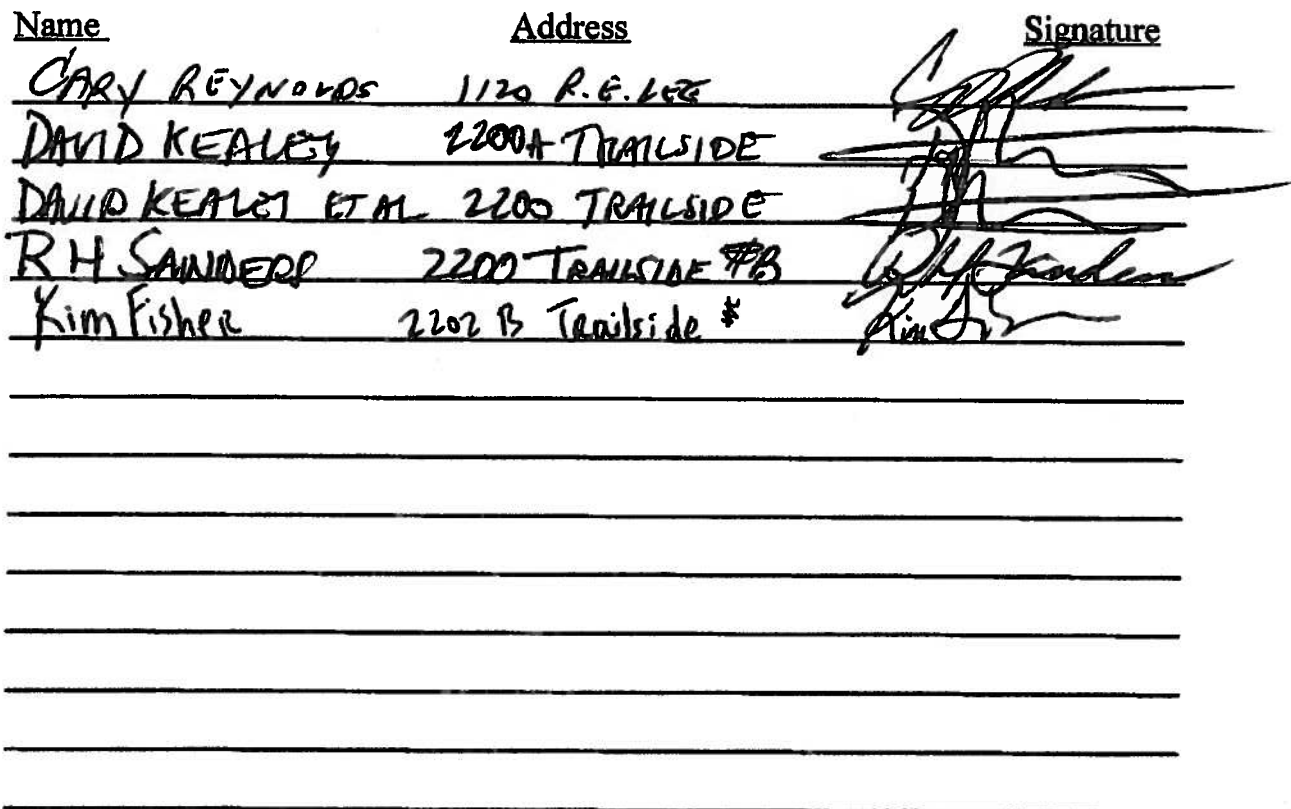 Name Address Signature
CARY REYNOLDS 1120 R.E. LEE
DAVID KEALEY 2200A TRAILSIDE
DAVID KEALEY ET AL 2200 TRAILSIDE
R H SANDERS 2200 TRAILSIDE #B
Kim Fisher 2202 B Trailside Kim